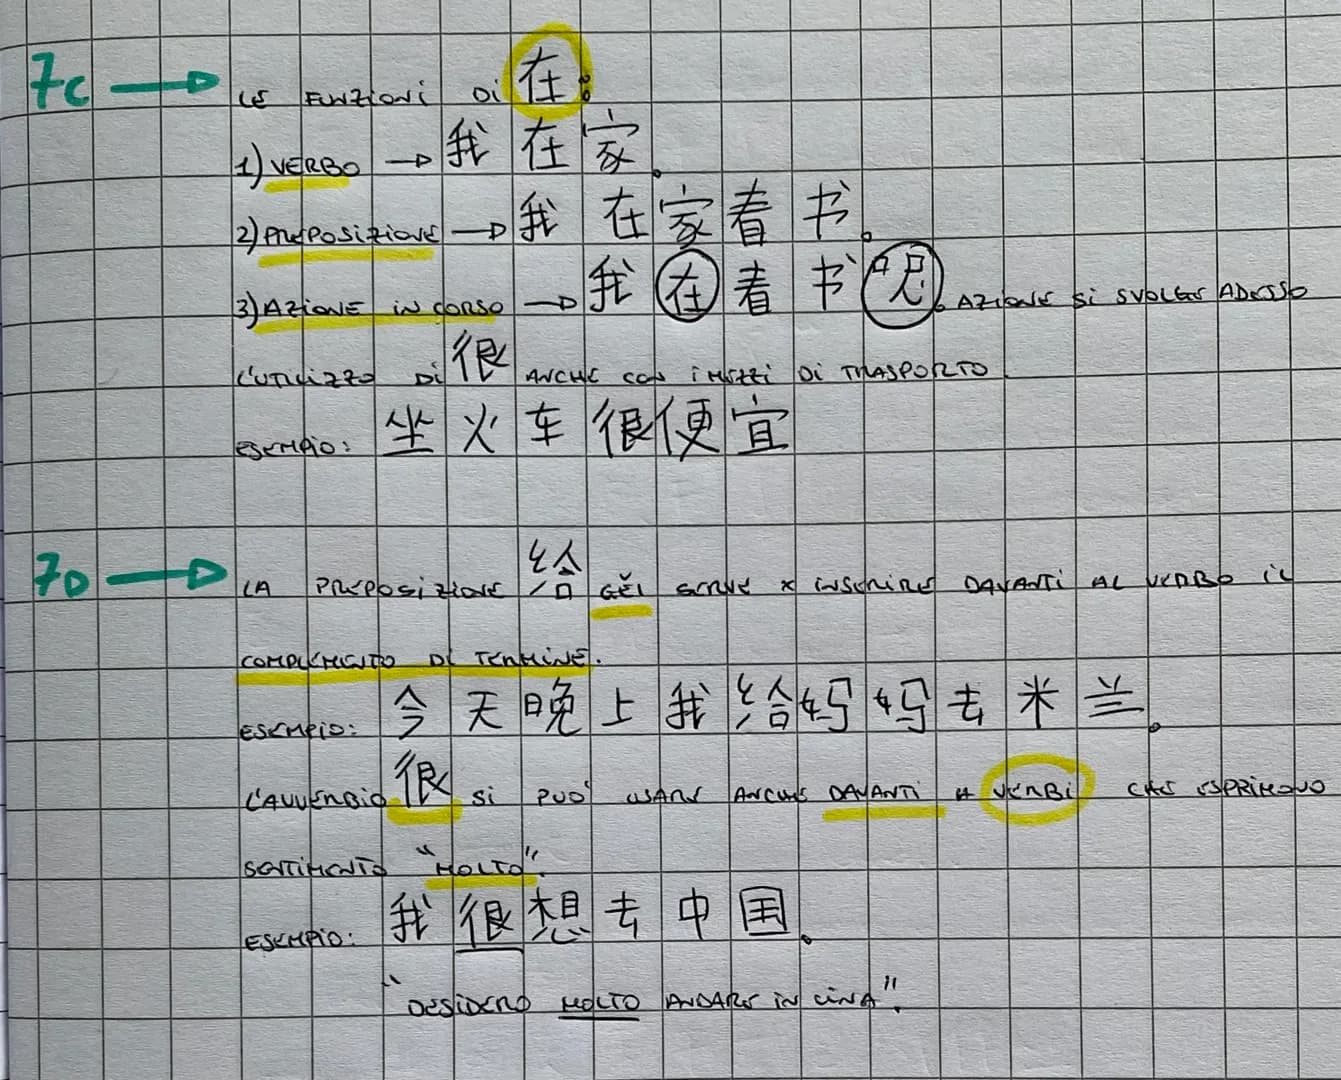 7C → LE FUNZIONI DI 在:
1) VERBO → 我在家。
2) PREPOSIZIONE → 我在家看书。
3) AZIONE IN CORSO → 我在看书呢。AZIONE SI SVOLGE ADESSO
L'UTILIZZO DI 很 ANCHE CON I MEZZI DI TRASPORTO.
ESEMPIO: 坐火车很便宜
7D → LA PREPOSIZIONE 给 GĚI SERVE X INSERIRE DAVANTI AL VERBO IL
COMPLEMENTO DI TERMINE.
ESEMPIO: 今天晚上我给妈妈去米兰。
L'AVVERBIO 很 SI PUO' USARE ANCHE DAVANTI A VERBI CHE ESPRIMONO
SENTIMENTO "MOLTO".
ESEMPIO: 我很想去中国。
"DESIDERO MOLTO ANDARE IN CINA".